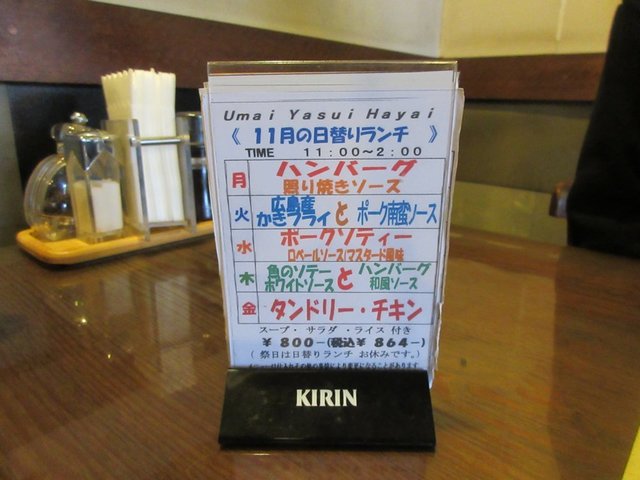 Umai Yasui Hayai
《 11月の日替りランチ 》
TIME 11:00～2:00
月 ハンバーグ
照り焼きソース
火 広島産かきフライ と ポーク南蛮ソース
水 ポークソティー
ロベールソース/マスタード風味
木 魚のソテーホワイトソース と ハンバーグ和風ソース
金 タンドリー・チキン
スープ・サラダ・ライス 付き
¥800-(税込¥864-)
(祭日は日替りランチ お休みです。)
KIRIN